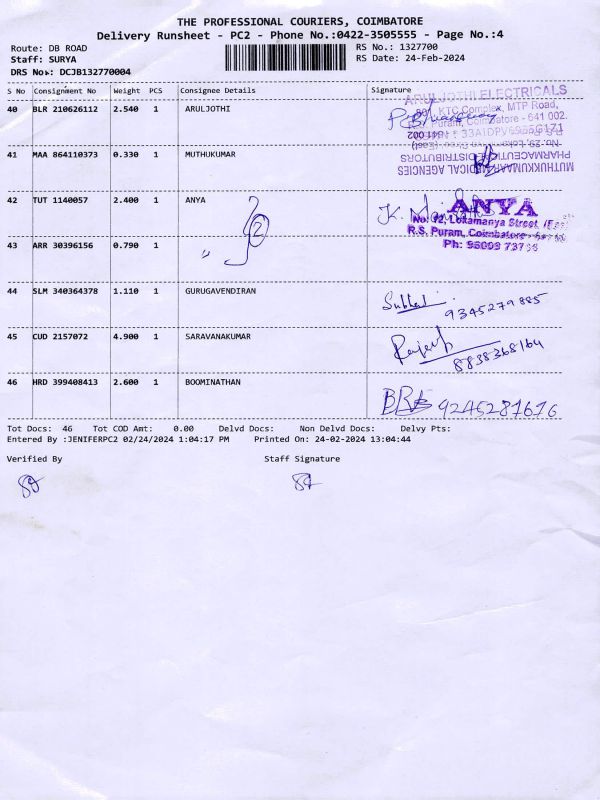 THE PROFESSIONAL COURIERS, COIMBATORE
Delivery Runsheet - PC2 - Phone No.:0422-3505555 - Page No.:4
Route: DB ROAD RS No.: 1327700
Staff: SURYA RS Date: 24-Feb-2024
DRS No.: DCJB132770004
S No Consignment No Weight PCS Consignee Details Signature
40 BLR 210626112 2.540 1 ARULJOTHI
ARULJOTHI ELECTRICALS
KTC Complex, MTP Road,
R.S. Puram, Coimbatore - 641 002.
41 MAA 864110373 0.330 1 MUTHUKUMAR
PHARMACEUTICAL DISTRIBUTORS
MUTHUKKUMARAN MEDICAL AGENCIES
42 TUT 1140057 2.400 1 ANYA
ANYA
No: 12, Lokamanya Street,
R.S. Puram, Coimbatore
Ph: 96009 737
43 ARR 30396156 0.790 1 " 2
44 SLM 340364378 1.110 1 GURUGAVENDIRAN
9345279885
45 CUD 2157072 4.900 1 SARAVANAKUMAR
8838368164
46 HRD 399408413 2.600 1 BOOMINATHAN
9245287676
Tot Docs: 46 Tot COD Amt: 0.00 Delvd Docs: Non Delvd Docs: Delvy Pts:
Entered By :JENIFERPC2 02/24/2024 1:04:17 PM Printed On: 24-02-2024 13:04:44
Verified By Staff Signature